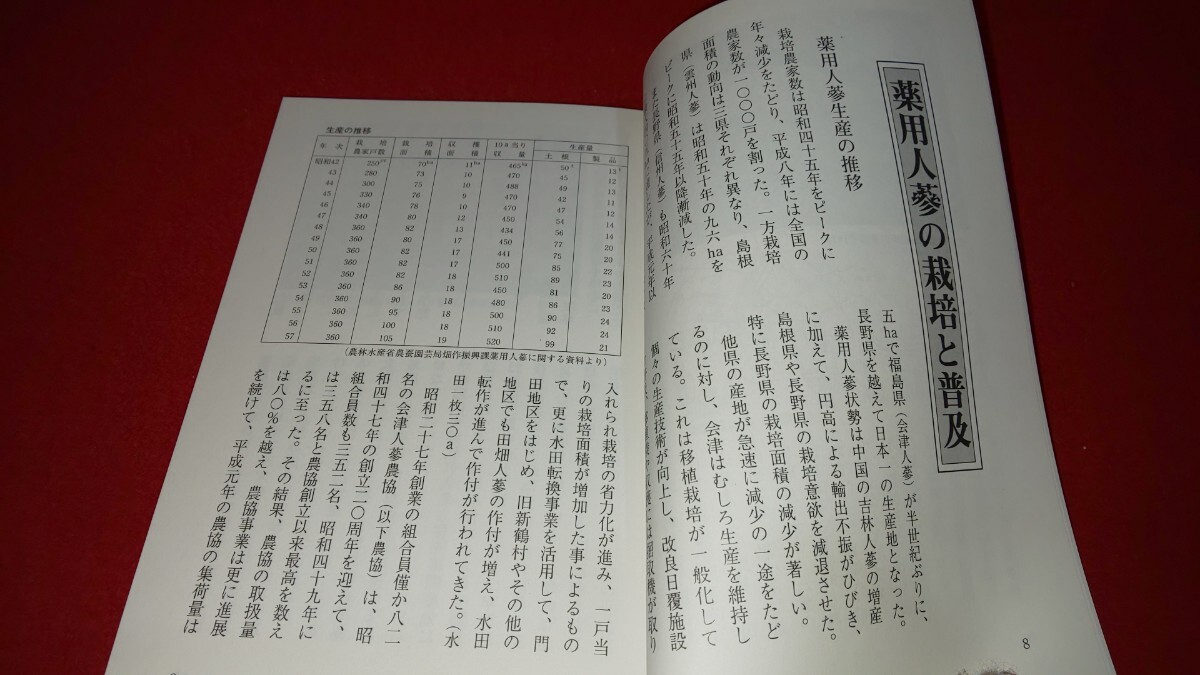 薬用人蔘の栽培と普及
薬用人蔘生産の推移
栽培農家数は昭和四十五年をピークに
年々減少をたどり、平成八年には全国の
農家数が一〇〇〇戸を割った。一方栽培
面積の動向は三県それぞれ異なり、島根
県(雲州人蔘)は昭和五十年の九六haを
ピークに昭和五十五年以降漸減した。
また長野県(信州人蔘)も昭和六十年
平成元年以
五haで福島県(会津人蔘)が半世紀ぶりに、
長野県を越えて日本一の生産地となった。
薬用人蔘状勢は中国の吉林人蔘の増産
に加えて、円高による輸出不振がひびき、
島根県や長野県の栽培意欲を減退させた。
特に長野県の栽培面積の減少が著しい。
他県の産地が急速に減少の一途をたど
るのに対し、会津はむしろ生産を維持し
ている。これは移植栽培が一般化して
個々の生産技術が向上し、改良日覆施設
収穫には掘取機が取り
8
生産の推移
年次 栽培農家戸数 栽培面積 収穫面積 10a当り収量 生産量 土根 製品
昭和42 250戸 70ha 11ha 465kg 50t 13t
43 280 73 10 470 45 12
44 300 75 10 486 49 13
45 330 76 9 470 42 11
46 340 78 10 470 47 12
47 340 80 12 450 54 12
48 360 82 13 434 56 14
49 360 82 17 456 77 20
50 360 82 17 441 75 20
51 360 85 17 500 85 22
52 360 86 18 510 89 23
53 360 86 18 450 81 20
54 360 90 18 480 86 23
55 360 95 18 500 90 24
56 360 100 18 510 92 24
57 360 105 19 520 99 21
(農林水産省農蚕園芸局畑作振興課薬用人蔘に関する資料より)
入れられ栽培の省力化が進み、一戸当
りの栽培面積が増加した事によるもの
で、更に水田転換事業を活用して、門
田地区をはじめ、旧新鶴村やその他の
地区でも田畑人蔘の作付が増え、水田
転作が進んで作付が行われてきた。(水
田一枚三〇a)
昭和二十七年創業の組合員僅か八二
名の会津人蔘農協(以下農協)は、昭
和四十七年の創立二〇周年を迎えて、
組合員数も三五二名、昭和四十九年に
は三五八名と農協創立以来最高を数え
るに至った。その結果、農協の取扱量
は八〇%を越え、農協事業は更に進展
を続けて、平成元年の農協の集荷量は